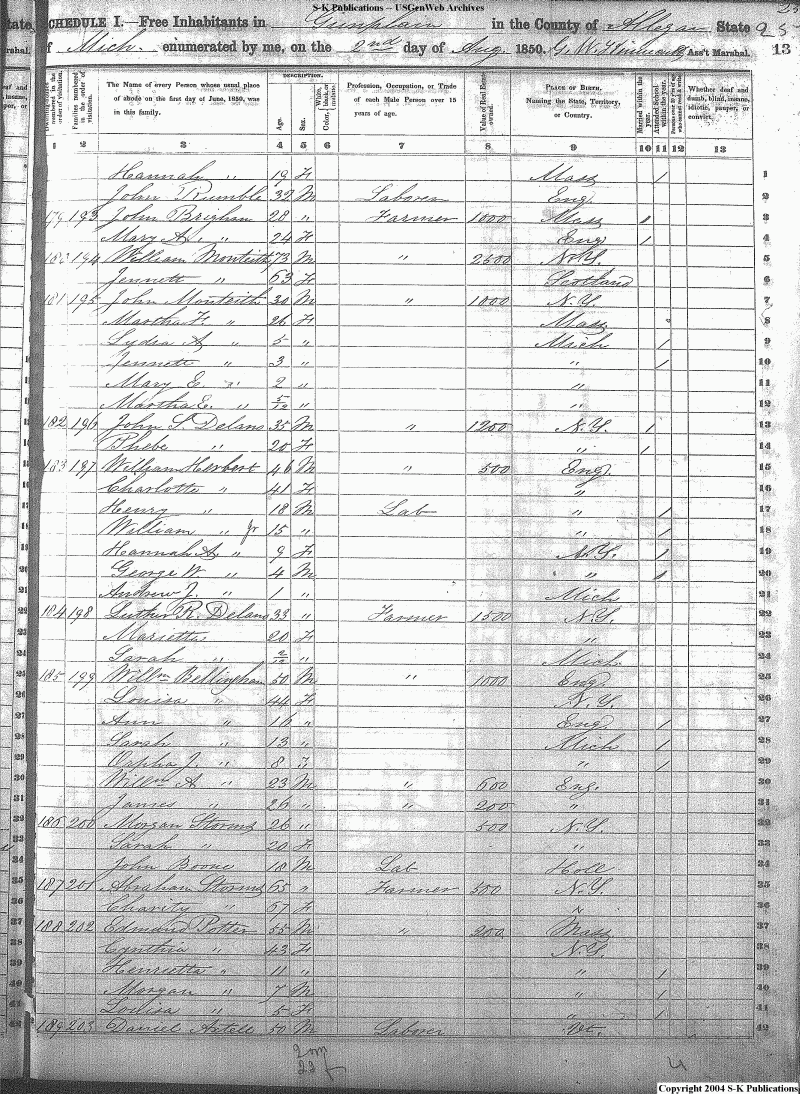 S-K Publications – USGenWeb Archives
SCHEDULE I.—Free Inhabitants in Gunplain in the County of Allegan State
of Mich. enumerated by me, on the 2nd day of Aug. 1850. Ass't Marshal. 13
DESCRIPTION.
The Name of every Person whose usual place of abode on the first day of June, 1850, was in this family.
Age.
Sex.
Profession, Occupation, or Trade of each Male Person over 15 years of age.
Value of Real Estate owned.
PLACE OF BIRTH. Naming the State, Territory, or Country.
Married within the year.
Attended School within the year.
Whether deaf and dumb, blind, insane, idiotic, pauper, or convict.
1 2 3 4 5 6 7 8 9 10 11 12 13
Hannah " 19 F Mass / 1
John Rumble 32 M Laborer Eng. 2
179 193 John Brigham 28 " Farmer 1000 Mass 1 3
Mary A. " 24 F Eng 1 4
194 William Monteith 73 M " 2500 N.Y. 5
Jennett " 63 F Scotland 6
181 195 John Monteith 30 M " 1000 N.Y. 7
Martha F. " 26 F Mass 8
Lydia A " 5 " Mich / 9
Jennett " 3 " " / 10
Mary E. " 2 " " 11
Martha E. " 5/12 " " 12
182 196 John S. Delano 35 M " 1200 N.Y. 1 13
Phebe " 20 F " 1 14
183 197 William Herbert 46 M " 500 Eng. 15
Charlotte " 41 F " 16
Henry " 18 M Lab " / 17
William " Jr 15 " " / 18
Hannah A " 9 F N.Y. / 19
George W " 4 M " / 20
Andrew J. " 1 " Mich 21
184 198 Luther R. Delano 33 " Farmer 1500 N.Y. 22
Marietta 20 F " 23
Sarah " 2/12 " Mich. 24
185 199 Willm Bellingham 50 M " 1000 Eng 25
Louisa " 44 F N.Y. 26
Ann " 16 " Eng / 27
Sarah " 13 " Mich / 28
Orpha J. " 8 F " / 29
Willm A " 23 M " 600 Eng. 30
James " 26 " " 200 " 31
186 200 Morgan Storms 26 " 500 N.Y. 32
Sarah " 20 F " 33
John Boone 18 M Lab Holl 34
187 201 Abraham Storms 65 " Farmer 300 N.Y. 35
Charity " 67 F " 36
188 202 Edmund Potter 55 M " 200 Mass 37
Cynthia " 43 F N.Y. 38
Henrietta " 11 " " / 39
Morgan " 7 M " / 40
Louisa " 5 F " / 41
189 203 Daniel 50 M Laborer Vt. 42
20m
22f
Copyright 2004 S-K Publications